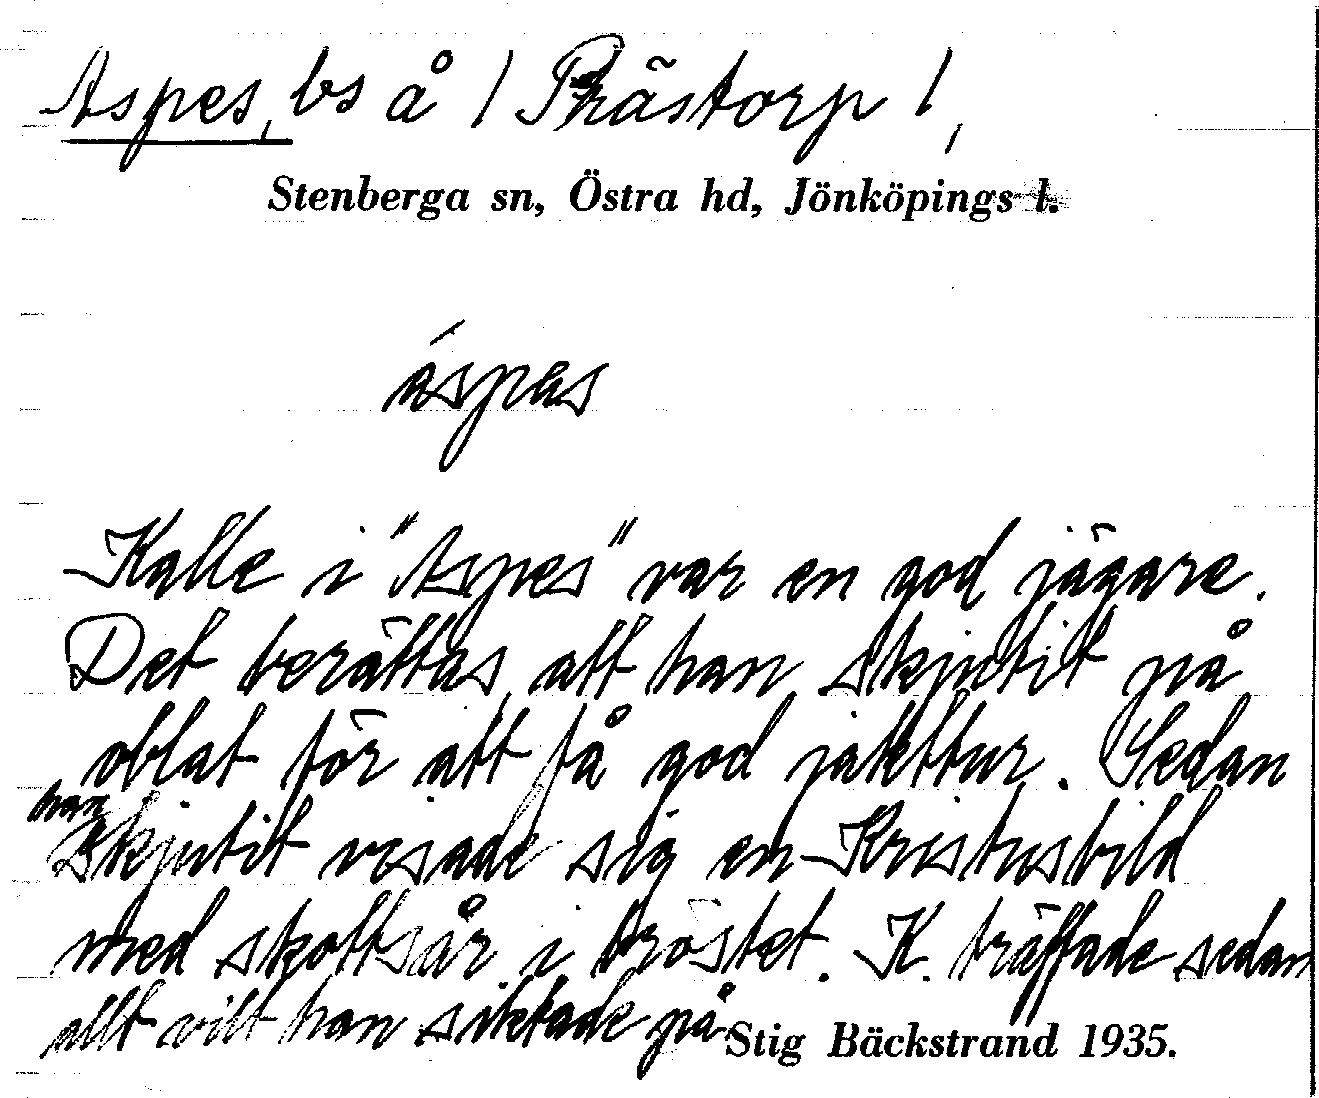 Aspes, bs å / Prästorp /,
Stenberga sn, Östra hd, Jönköpings l.
áspəs
Kalle i "Aspes" var en god jägare.
Det berättas, att han skjutit på
oblat för att få god jakttur. Sedan
han
skjutit visade sig en Kristusbild
med skottsår i bröstet. K. träffade sedan
allt vilt han siktade på.
Stig Bäckstrand 1935.